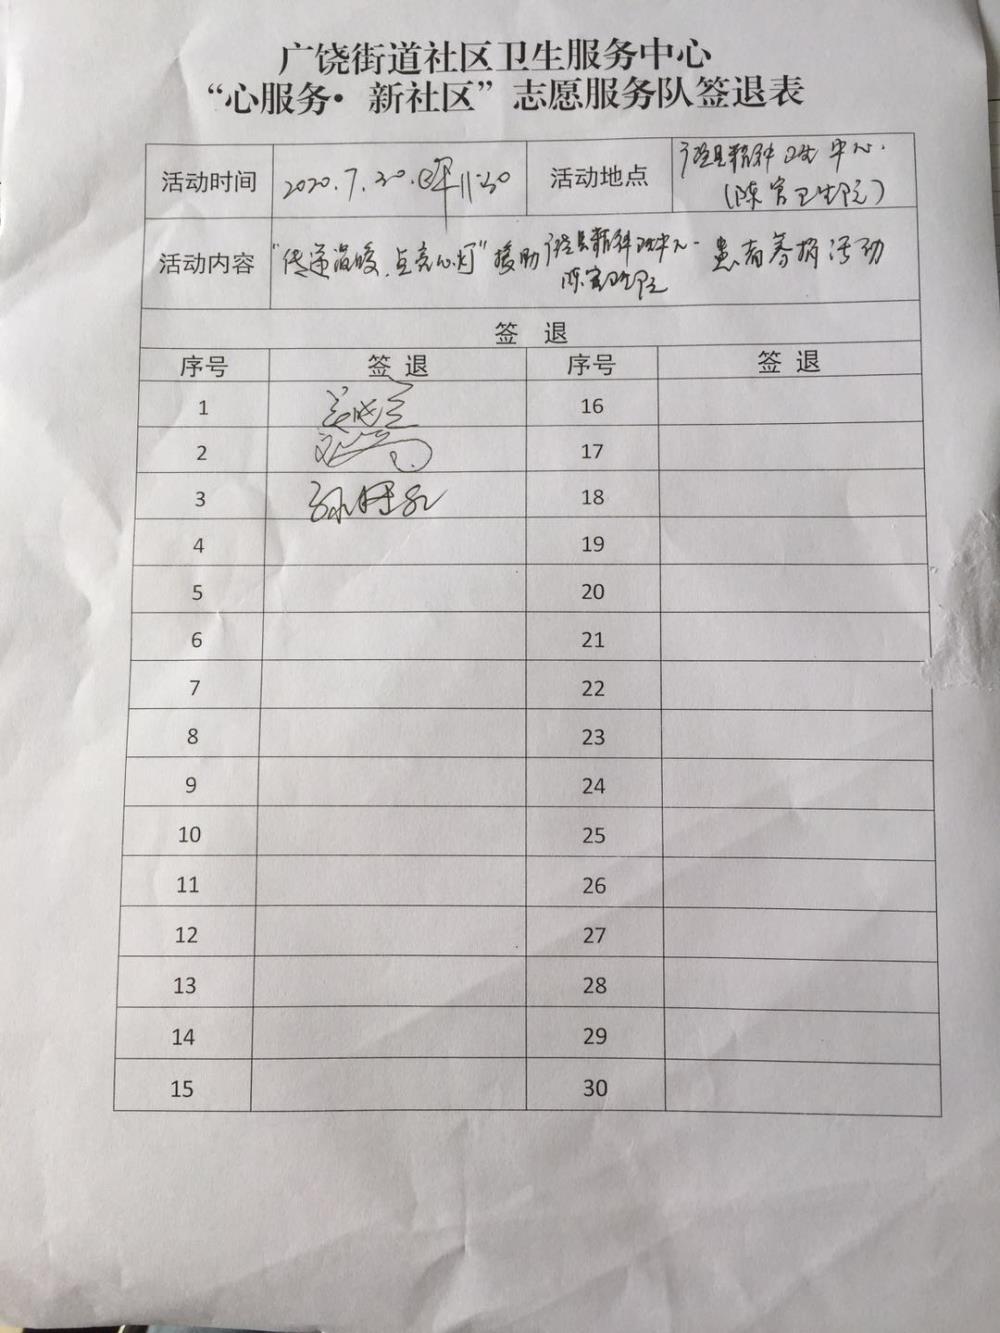 广饶街道社区卫生服务中心
“心服务·新社区”志愿服务队签退表
活动时间 2020.7.20. 11:30 活动地点 精神卫生中心.
(陈官卫生院)
活动内容 “传递温暖.点亮心灯”援助 患者募捐活动
陈官卫生院
签 退
序号 签 退 序号 签 退
1 16
2 17
3 18
4 19
5 20
6 21
7 22
8 23
9 24
10 25
11 26
12 27
13 28
14 29
15 30